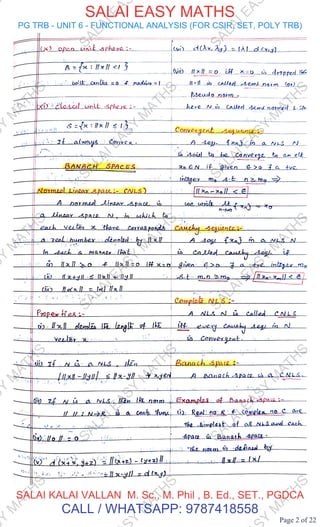 SALAI EASY MATHS
PG TRB - UNIT 6 - FUNCTIONAL ANALYSIS (FOR CSIR, SET, POLY TRB)
(x) open unit sphere :-
S = { x : ||x|| < 1 }
with centre = 0 & radius = 1
(xi) closed unit sphere :-
S = { x : ||x|| ≤ 1 }
If always Convex.
BANACH SPACES
Normed linear space :- (NLS)
A normed linear space is
a linear space N, in which to
each vector x there corresponds
a real number denoted by ||x||
in such a manner that
(i) ||x|| ≥ 0 & ||x|| = 0 iff x = 0
(ii) ||x+y|| ≤ ||x|| + ||y||
(iii) ||αx|| = |α| ||x||
Properties :-
(i) ||x|| denotes the length of the
vector x
(ii) If N is a NLS, then
| ||x|| - ||y|| | ≤ ||x-y|| ∀ x,y∈N
(iii) If N is a NLS, then the norm
|| ||: N→R is a cont. func
(iv) ||0|| = 0
(v) d(x+z, y+z) = ||(x+z) - (y+z)||
= ||x-y|| = d(x,y)
(vi) d(λx, λy) = |λ| d(x,y)
(vii) ||x|| = 0 iff x=0 is dropped
||·|| is called semi norm (or)
Pseudo norm.
here N is called semi normed
Convergent sequence :-
A seq. {xn} in a NLS N
is said to be converge to an elt
x0 ∈ N if given ε > 0 ∃ a +ve
integer m0 s.t n ≥ m0 ⇒
||xn - x0|| < ε
we write lt n→∞ xn = x0
Cauchy sequence :-
A seq {xn} in a NLS N
is called Cauchy seq. if
given ε > 0 ∃ a +ve integer m0
s.t m,n ≥ m0 ⇒ ||xm - xn|| < ε
Complete NLS :-
A NLS N is called CNLS
iff every cauchy seq in N
is convergent.
Banach space :-
A Banach space is a CNLS.
Examples of Banach space :-
(i) Real no. R & complex no. C are
the simplest of all NLS and each
space is Banach space.
The norm is defined by
||x|| = |x|
Page 2 of 22
SALAI KALAI VALLAN M. Sc., M. Phil , B. Ed., SET., PGDCA
CALL / WHATSAPP: 9787418558